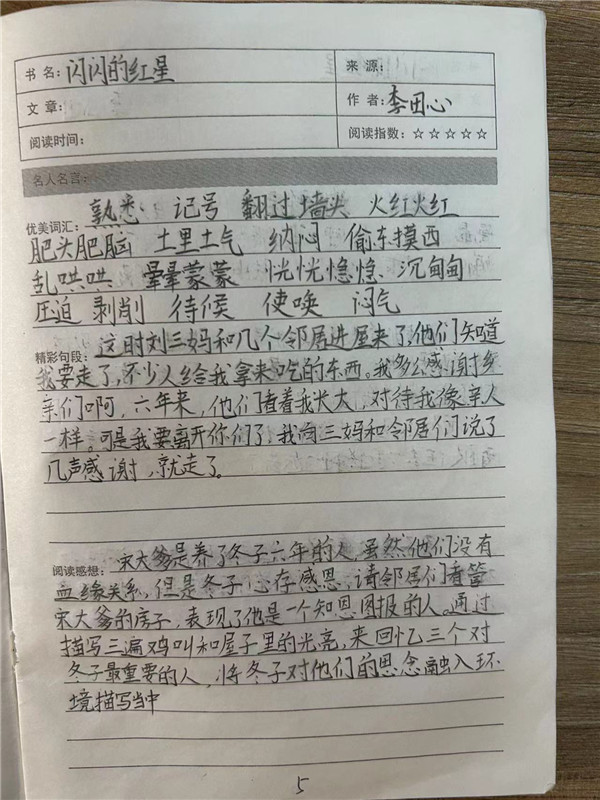 书名: 闪闪的红星 来源:
文章: 作者: 李田心
阅读时间: 阅读指数: ☆☆☆☆☆
名人名言:
优美词汇: 熟悉 记号 翻过墙头 火红火红
肥头肥脑 土里土气 纳闷 偷东摸西
乱哄哄 晕晕蒙蒙 恍恍惚惚 沉甸甸
压迫 剥削 待候 使唤 闷气
精彩句段: 这时刘三妈和几个邻居进屋来了,他们知道
我要走了,不少人给我拿来吃的东西。我多么感谢乡
亲们啊,六年来,他们看着我长大,对待我像亲人
一样。可是我要离开你们了,我向三妈和邻居们说了
几声感谢,就走了。
阅读感想: 宋大爹是养了冬子六年的人,虽然他们没有
血缘关系,但是冬子心存感恩,请邻居们看管
宋大爹的房子,表现了他是一个知恩图报的人。通过
描写三遍鸡叫和屋子里的光亮,来回忆三个对
冬子最重要的人,将冬子对他们的思念融入环
境描写当中
5